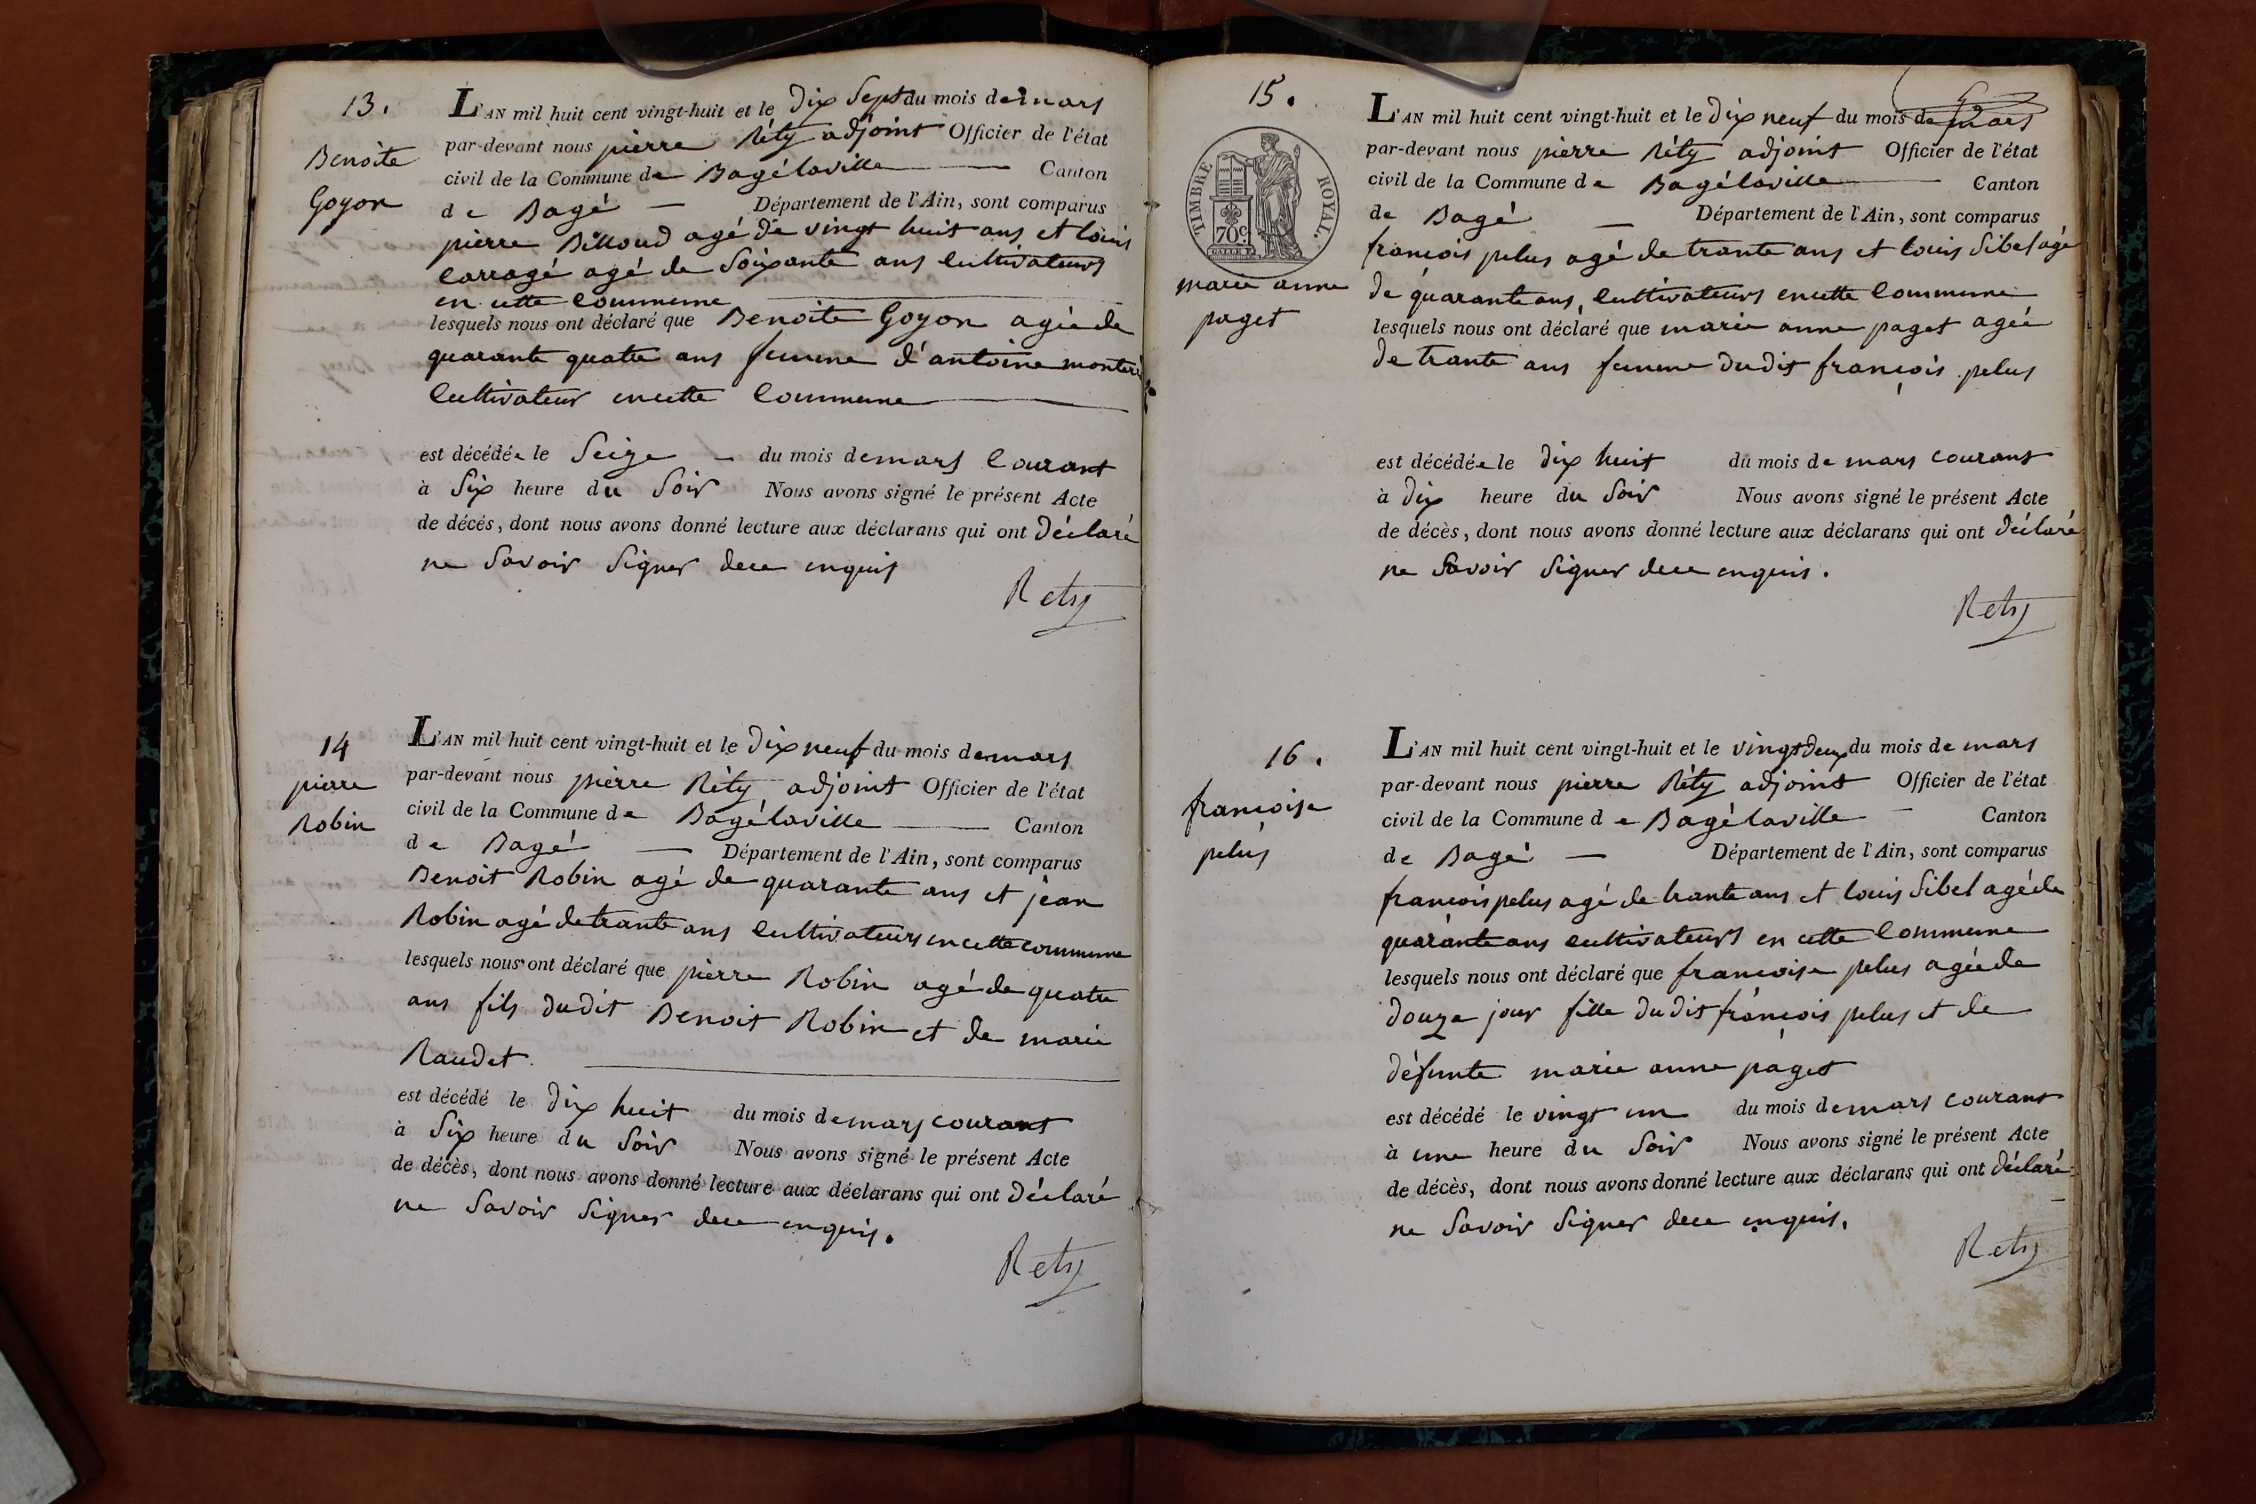 13.
Benoite
Goyon
L'AN mil huit cent vingt-huit et le dix Sept du mois de mars
par-devant nous pierre Réty adjoint Officier de l'état
civil de la Commune de Bagélaville Canton
de Bagé — Département de l'Ain, sont comparus
pierre Billoud agé de vingt huit ans et louis
Carragé agé de Soixante ans Cultivateurs
en cette Commune
lesquels nous ont déclaré que Benoite Goyon agée de
quarante quatre ans femme d'antoine
Cultivateur en cette Commune
est décédée le Seize — du mois de mars Courant
à Six heure du Soir Nous avons signé le présent Acte
de décés, dont nous avons donné lecture aux déclarans qui ont déclaré
ne Savoir Signer dece enquis
Rety
14
pierre
Robin
L'AN mil huit cent vingt-huit et le dix neuf du mois de mars
par-devant nous pierre Réty adjoint Officier de l'état
civil de la Commune de Bagélaville Canton
de Bagé — Département de l'Ain, sont comparus
Benoit Robin agé de quarante ans et jean
Robin agé de trante ans Cultivateurs en cette commune
lesquels nous ont déclaré que pierre Robin agé de quatre
ans fils dudit Benoit Robin et de marie
Raudet
est décédé le dix huit du mois de mars courant
à Six heure du Soir Nous avons signé le présent Acte
de décès, dont nous avons donné lecture aux déclarans qui ont déclaré
ne Savoir Signer dece enquis.
Rety
15.
TIMBRE ROYAL.
70c.
marie anne
paget
L'AN mil huit cent vingt-huit et le dix neuf du mois de mars
par-devant nous pierre Réty adjoint Officier de l'état
civil de la Commune de Bagélaville Canton
de Bagé — Département de l'Ain, sont comparus
françois pelus agé de trante ans et louis Sibel agé
de quarante ans, Cultivateurs en cette Commune
lesquels nous ont déclaré que marie anne paget agée
de trante ans femme dudit françois pelus
est décédée le dix huit du mois de mars courant
à dix heure du Soir Nous avons signé le présent Acte
de décès, dont nous avons donné lecture aux déclarans qui ont déclaré
ne Savoir Signer dece enquis.
Rety
16.
francoise
pelus
L'AN mil huit cent vingt-huit et le vingt deux du mois de mars
par-devant nous pierre Réty adjoint Officier de l'état
civil de la Commune de Bagélaville — Canton
de Bagé — Département de l'Ain, sont comparus
françois pelus agé de trante ans et louis Sibel agé de
quarante ans cultivateurs en cette Commune
lesquels nous ont déclaré que francoise pelus agée de
douze jour fille dudit françois pelus et de
défunte marie anne paget
est décédé le vingt un du mois de mars courant
à une heure du Soir Nous avons signé le présent Acte
de décès, dont nous avons donné lecture aux déclarans qui ont déclaré
ne Savoir Signer dece enquis.
Rety